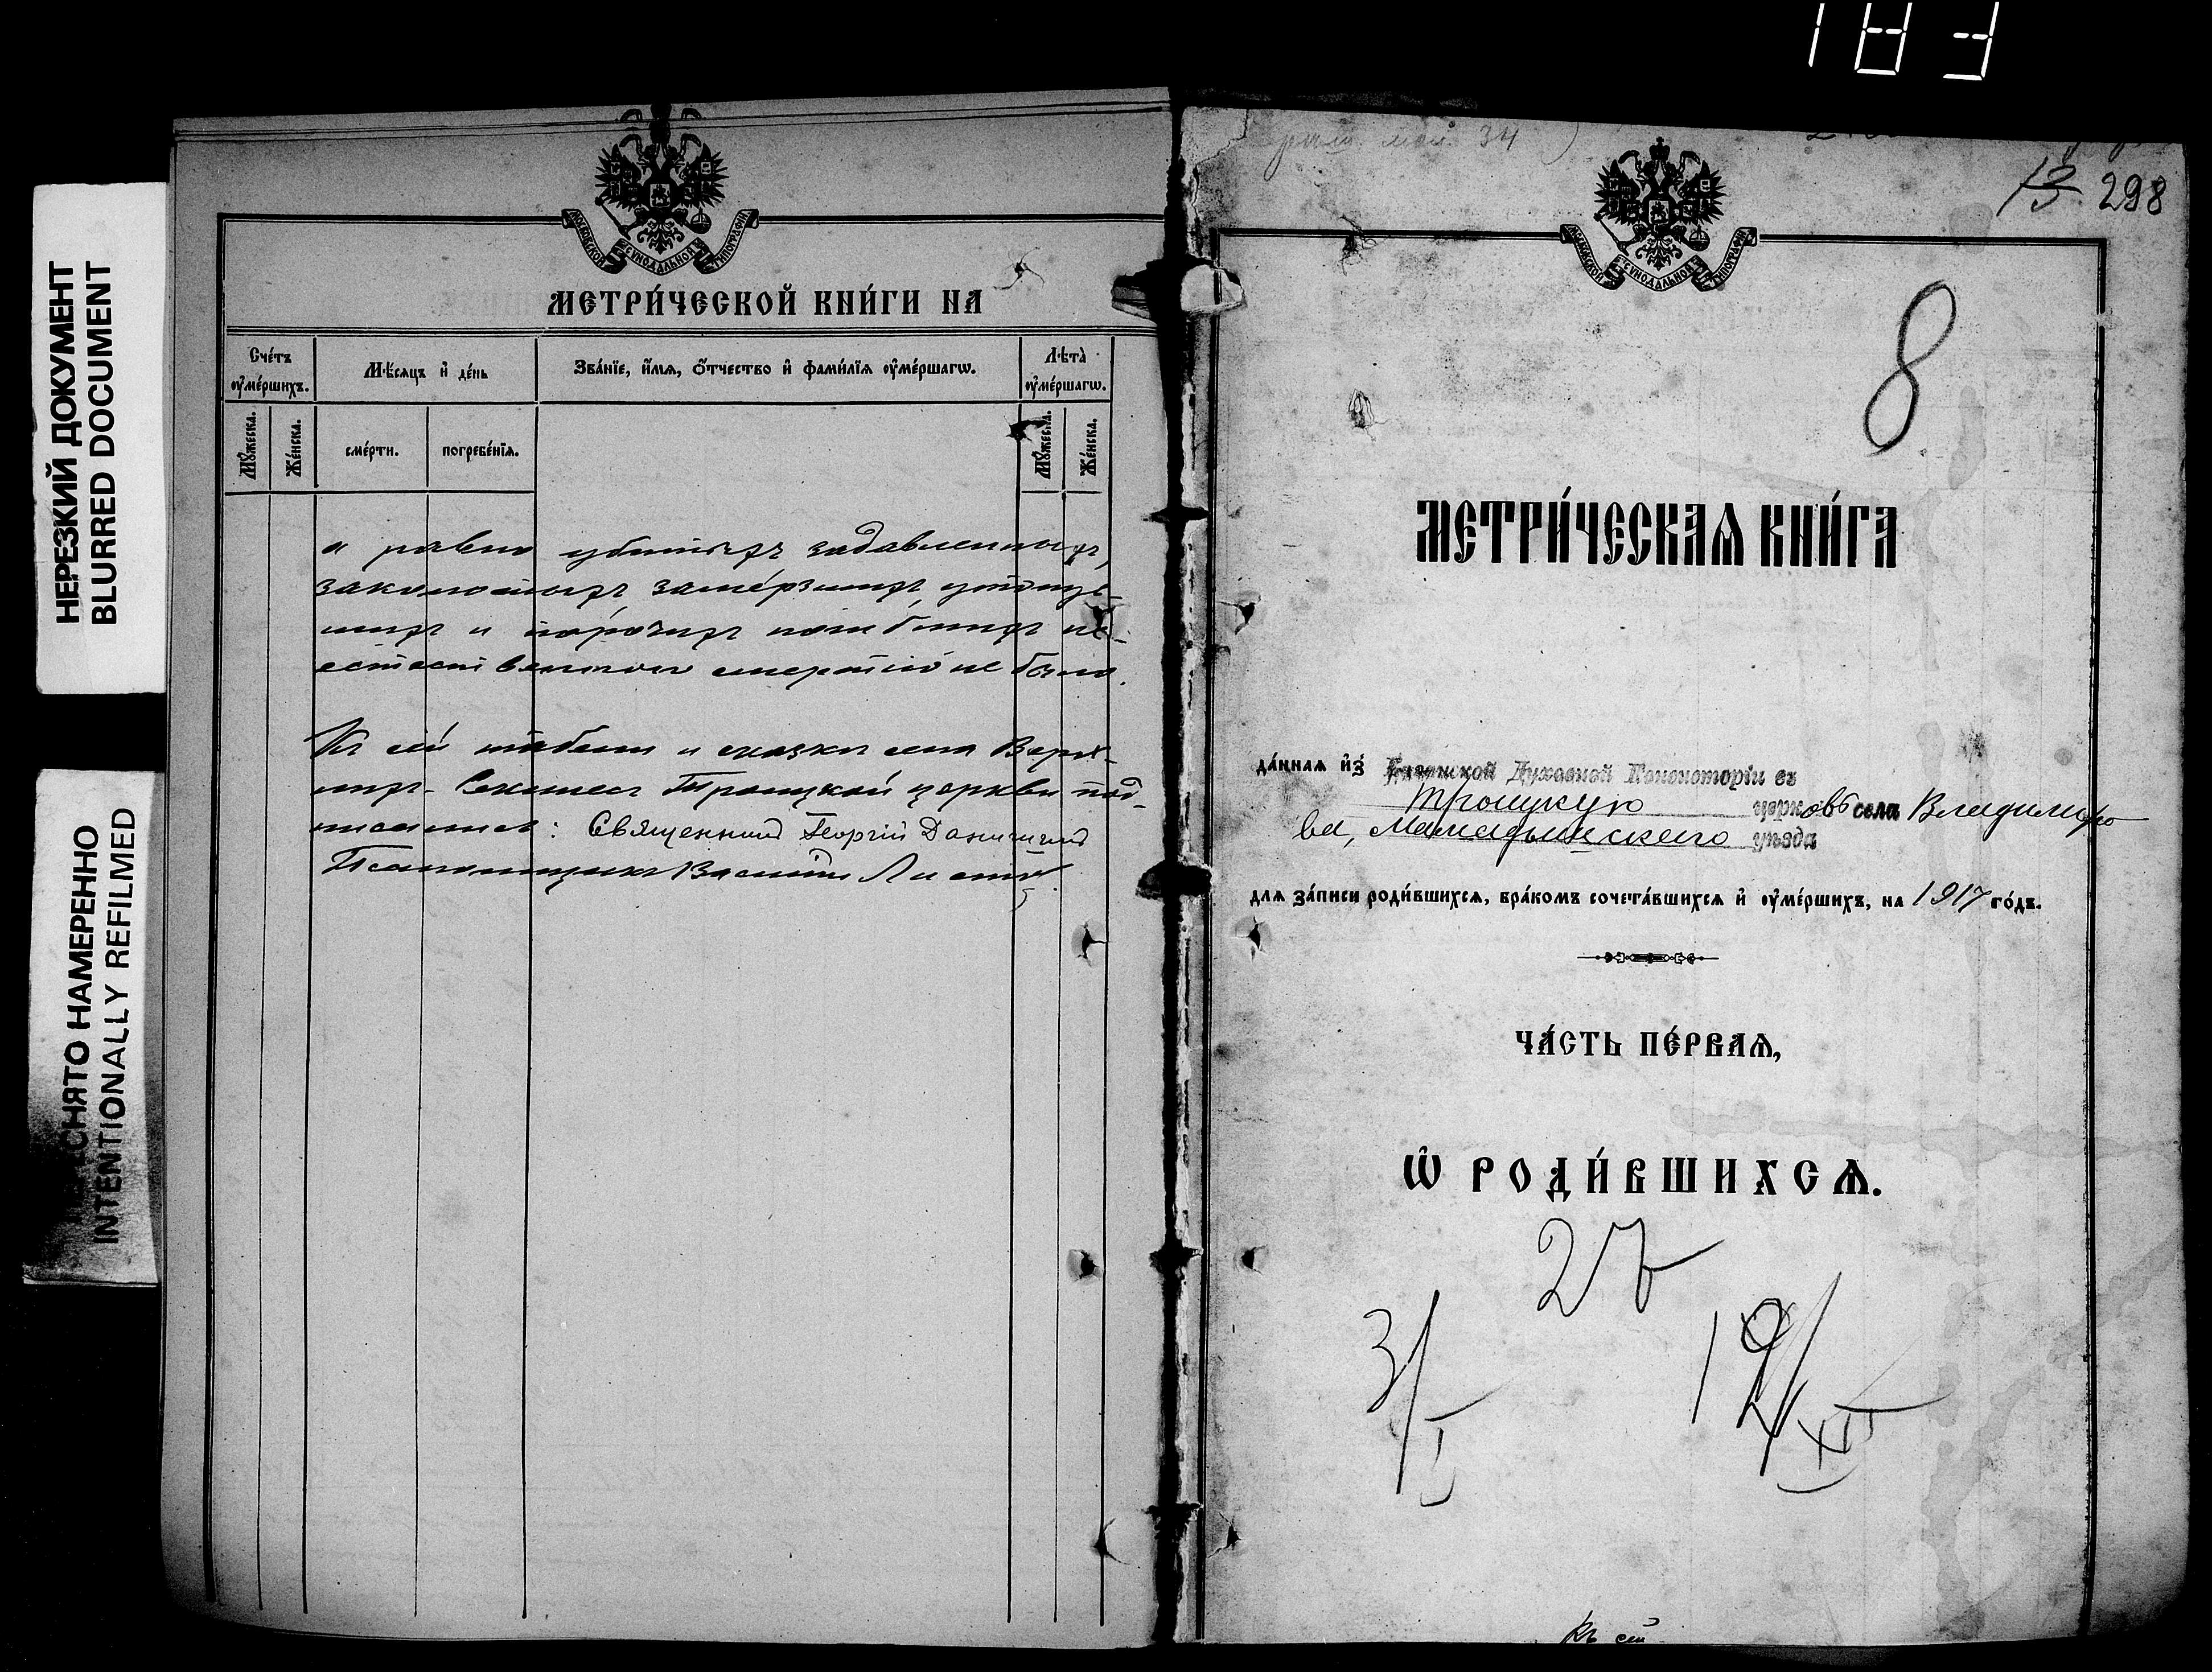 183
НЕРЕЗКИЙ ДОКУМЕНТ
BLURRED DOCUMENT
СНЯТО НАМЕРЕННО
INTENTIONALLY REFILMED
МОСКОВСКОЙ СѴНОДАЛЬНОЙ ТИПОГРАФІИ
МЕТРИ́ЧЕСКОЙ КНИ́ГИ НА
Сче́тъ ᲂу҆ме́ршихъ.
Мѣ́сяцъ и҆ де́нь
Зва́нїе, и҆́мѧ, ѻ҆́тчество и҆ фами́лїѧ ᲂу҆ме́ршагѡ.
Лѣта̀ ᲂу҆ме́ршагѡ.
Мꙋ́жеска.
Же́нска.
сме́рти.
погребе́нїѧ.
Мꙋ́жеска.
Же́нска.
а равно убитыхъ задавленныхъ,
заколотыхъ замёрзшихъ, утонув-
шихъ и прочихъ погибшихъ не-
естественною смертію не было.
Къ сей табели и сказкѣ села Верх-
нихъ- Троицкой церкви под-
писались: Священникъ Георгій
Псаломщикъ Василій
298
МОСКОВСКОЙ СѴНОДАЛЬНОЙ ТИПОГРАФІИ
8
МЕТРИ́ЧЕСКАѦ КНИ́ГА
да́ннаѧ и҆з̾ Казанской Духовной Консисторіи въ
Троицкую церковь села Владимиро
ва, Мамадышскаго уѣзда
длѧ за́писи роди́вшихсѧ, бра́комъ сочета́вшихсѧ и҆ ᲂу҆ме́ршихъ, на 1917 го́дъ.
ЧА́СТЬ ПЕ́РВАѦ,
Ѡ҆ РОДИ́ВШИХСѦ.
3/I
Къ сей